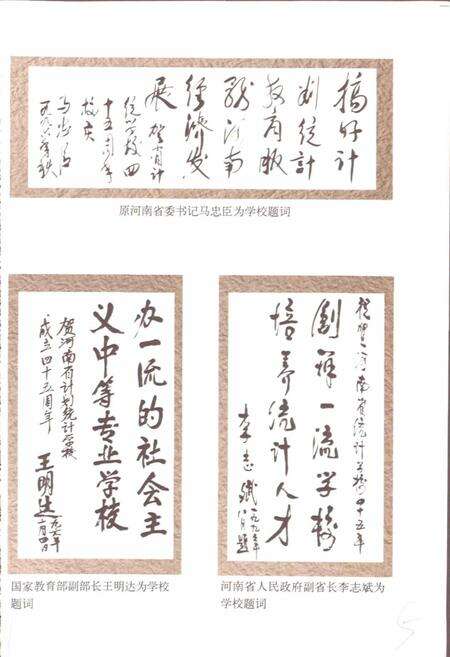 搞好计
划统计
教育服
务河南
经济发
展 贺省计
统学校四
十五周年
校庆
马忠臣
一九九六年秋
原河南省委书记马忠臣为学校题词
办一流的社会主
义中等专业学校
贺河南省计划统计学校
成立四十五周年
王明达
一九九六年
国家教育部副部长王明达为学校
题词
祝贺河南省统计学校四十五年
创办一流学校
培养统计人才
李志斌
河南省人民政府副省长李志斌为
学校题词